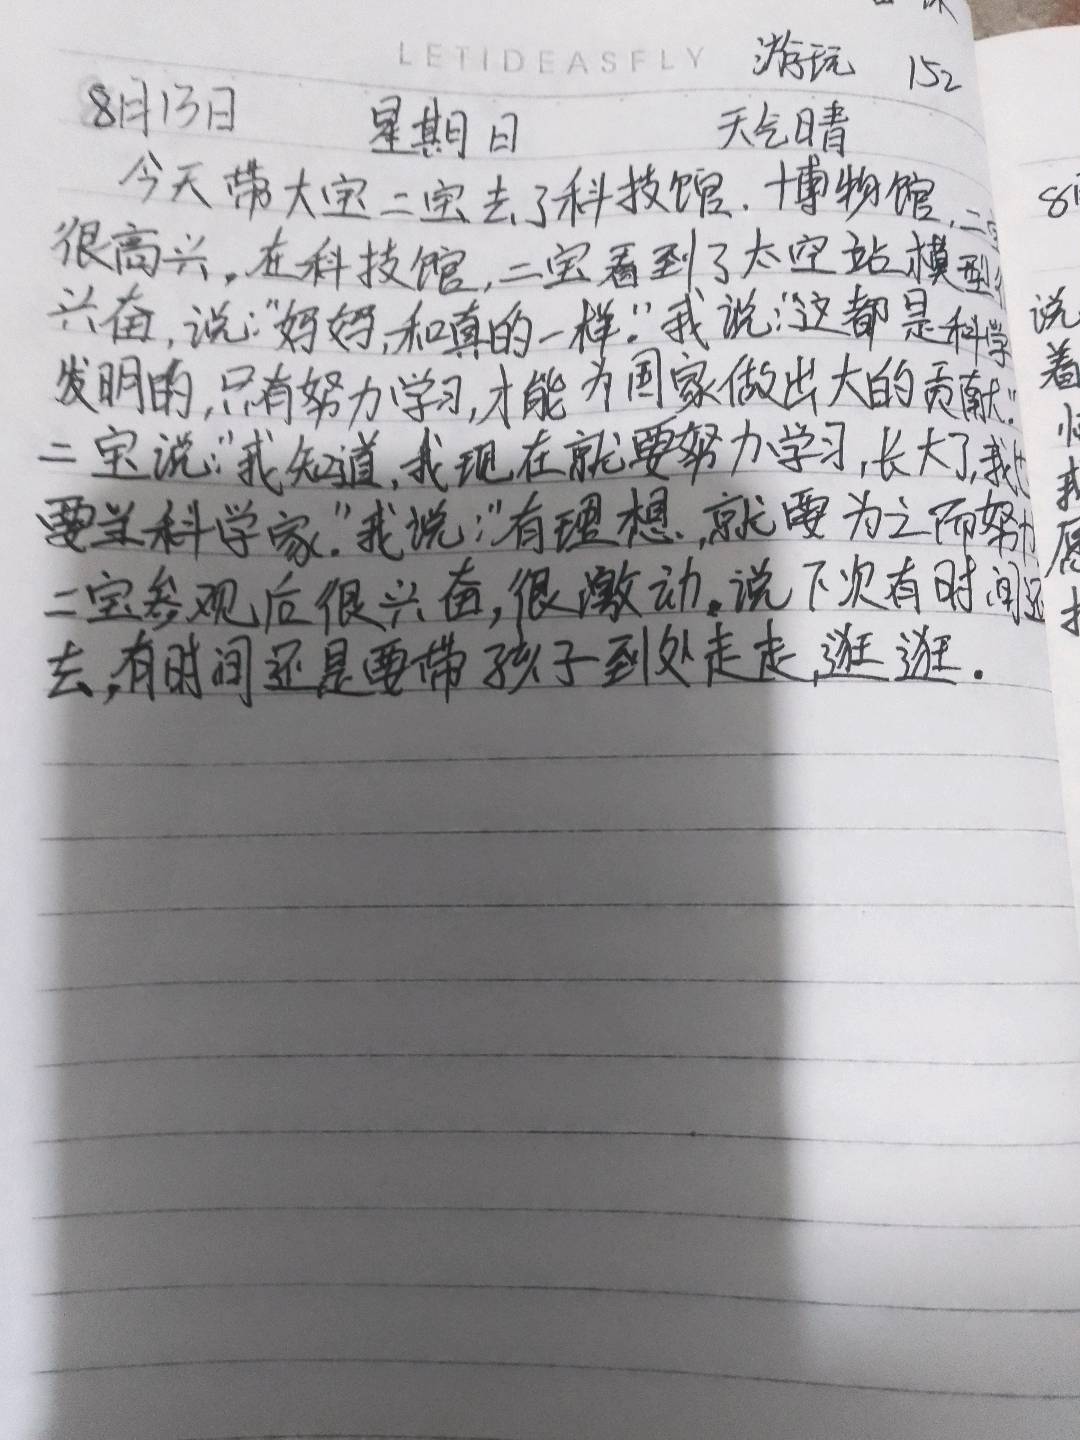 LETIDEASFLY
游玩 152
8月13日 星期日 天气晴
今天带大宝二宝去了科技馆.博物馆,二宝
很高兴,在科技馆,二宝看到了太空站模型
兴奋,说:"妈妈,和真的一样."我说:"这都是科学
发明的,只有努力学习,才能为国家做出大的贡献."
二宝说:"我知道,我现在就要努力学习,长大了,我也
要当科学家."我说:"有理想,就要为之而努力
二宝参观后很兴奋,很激动.说下次有时间还
去,有时间还是要带孩子到处走走,逛逛.
8月
说
着
我
愿